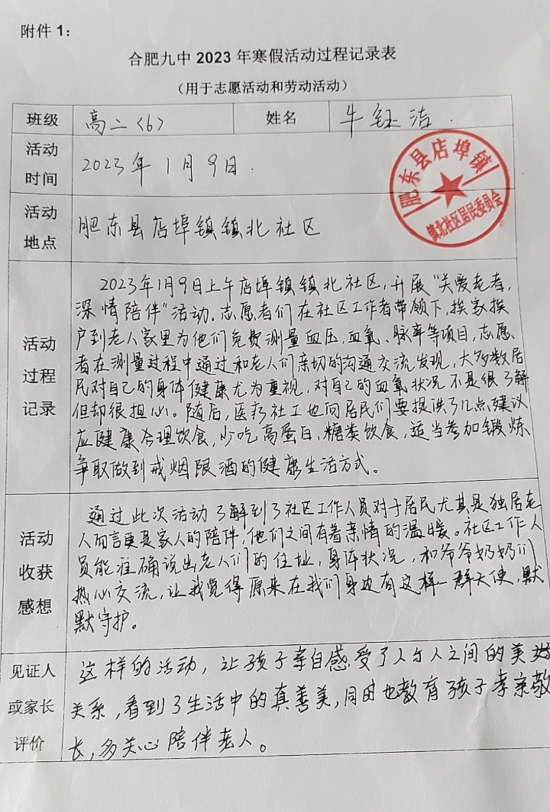 附件 1：
合肥九中 2023 年寒假活动过程记录表
（用于志愿活动和劳动活动）
班级 高二（6） 姓名 牛钰洁
活动时间 2023年1月9日.
活动地点 肥东县店埠镇镇北社区
肥东县店埠镇
镇北社区居民委员会
活动过程记录
2023年1月9日上午店埠镇镇北社区，开展“关爱老者，
深情陪伴”活动。志愿者们在社区工作者带领下，挨家挨
户到老人家里为他们免费测量血压、血氧、脉率等项目，志愿
者在测量过程中通过和老人们亲切的沟通交流发现，大多数居
民对自己的身体健康尤为重视，对自己的血氧状况不是很了解
但却很担心。随后，医疗社工也向居民们要提供了几点建议
应健康合理饮食，少吃高蛋白，糖类饮食，适当参加锻炼
争取做到戒烟限酒的健康生活方式。
活动收获感想
通过此次活动了解到了社区工作人员对于居民尤其是独居老
人而言更是家人的陪伴，他们之间有着亲情的温暖。社区工作人
员能准确说出老人们的住址，身体状况，和爷爷奶奶们
热心交流，让我觉得原来在我们身边有这样一群天使，默
默守护。
见证人或家长评价
这样的活动，让孩子亲自感受了人与人之间的美好
关系，看到了生活中的真善美，同时也教育孩子孝亲敬
长，多关心陪伴老人。